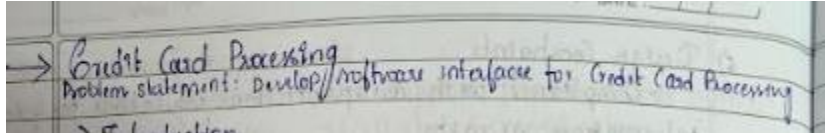 → Credit Card Processing
Problem statement: Develop software interfacce for Credit Card Processing